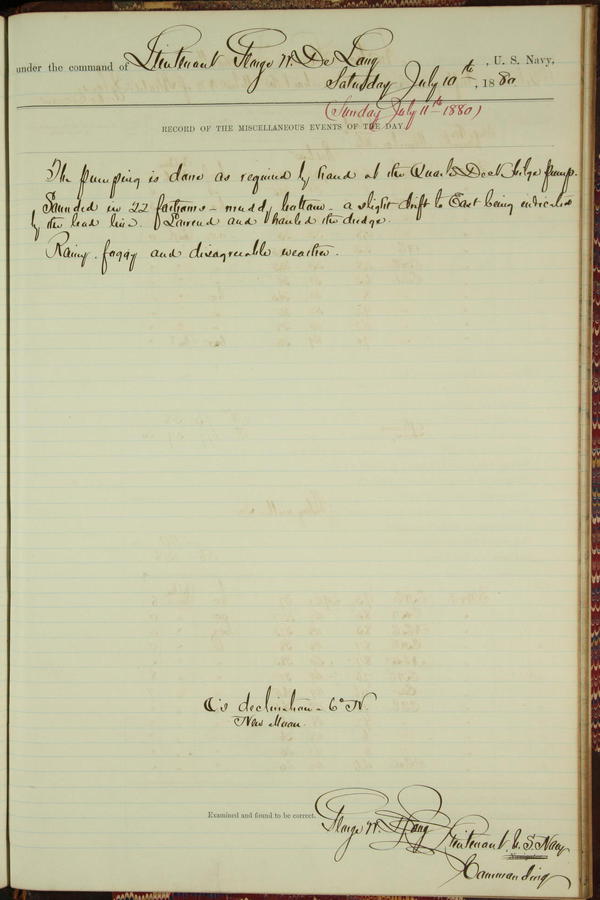 under the command of Lieutenant George W. De Long, U. S. Navy,
Saturday July 10th, 1880
(Sunday July 11th 1880)
RECORD OF THE MISCELLANEOUS EVENTS OF THE DAY.
The pumping is done as required by hand at the Quarter Deck bilge pump.
Sounded in 22 fathoms - muddy bottom - a slight drift to East being indicated
by the lead line. Lowered and hauled the dredge.
Rainy - foggy and disagreeable weather.
☾'s declination - 6° N.
New Moon.
Examined and found to be correct.
George W. De Long Lieutenant U. S. Navy
Navigator.
Commanding